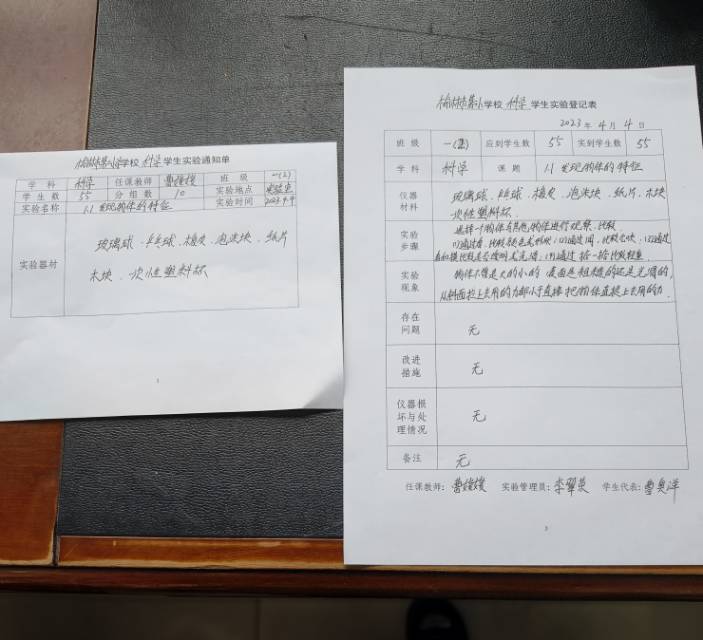 学校 科学 学生实验通知单
学科 科学 任课教师 班级 一(2)
学生数 55 分组数 10 实验地点 实验室
实验名称 1.1 发现物体的特征 实验时间 2023.4.4
实验器材
玻璃球、乒乓球、橡皮、泡沫块、纸片
木块、一次性塑料杯
1
学校 科学 学生实验登记表
2023年4月4日
班级 一(2) 应到学生数 55 实到学生数 55
学科 科学 课题 1.1 发现物体的特征
仪器材料
玻璃球、乒乓球、橡皮、泡沫块、纸片、木块
一次性塑料杯
实验步骤
选择一个物体与其他物体进行观察、比较
(1)通过看,比较颜色或形状;(2)通过闻,比较气味;(3)通过
(4)通过掂一掂比较轻重
实验现象
物体不管是大的小的 还是粗糙的还是光滑的,
从斜面拉上去用的力都小于直接把物体直提上去用的力
存在问题 无
改进措施 无
仪器损坏与处理情况 无
备注 无
任课教师: 实验管理员: 学生代表:
3